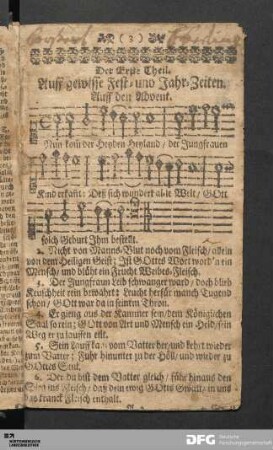 ( 2 )
Der Erste Theil.
Auff gewisse Fest- und Jahr-Zeiten.
Auff den Advent.
Nun kom der Heyden Heyland / der Jungfrauen
Kind erkañt: Deß sich wundert alle Welt / GOtt
solch Geburt Ihm bestellt.
2. Nicht von Mannes-Blut noch vom Fleisch / allein
von dem Heiligen Geist; Ist GOttes Wort word'n ein
Mensch / und blüht ein Frucht Weibes-Fleisch.
3. Der Jungfrauen Leib schwanger ward / doch blieb
Keuschheit rein bewahrt: Leucht herfür manch Tugend
schon / GOtt war da in seinem Thron.
4. Er gieng aus der Kammer sein / dem Königlichen
Saal so rein; GOtt von Art und Mensch ein Held / sein
Weg er zu lauffen eilt.
5. Sein Lauff kam vom Vatter her / und kehrt wieder
zum Vatter; Fuhr hinunter zu der Höll / und wieder zu
GOttes Stul.
6. Der du bist dem Vatter gleich / führ hinaus den
Sieg ins Fleisch / daß dein ewig GOttes Gwalt / in uns
das kranck Fleisch enthalt.
DFG
Deutsche
Forschungsgemeinschaft